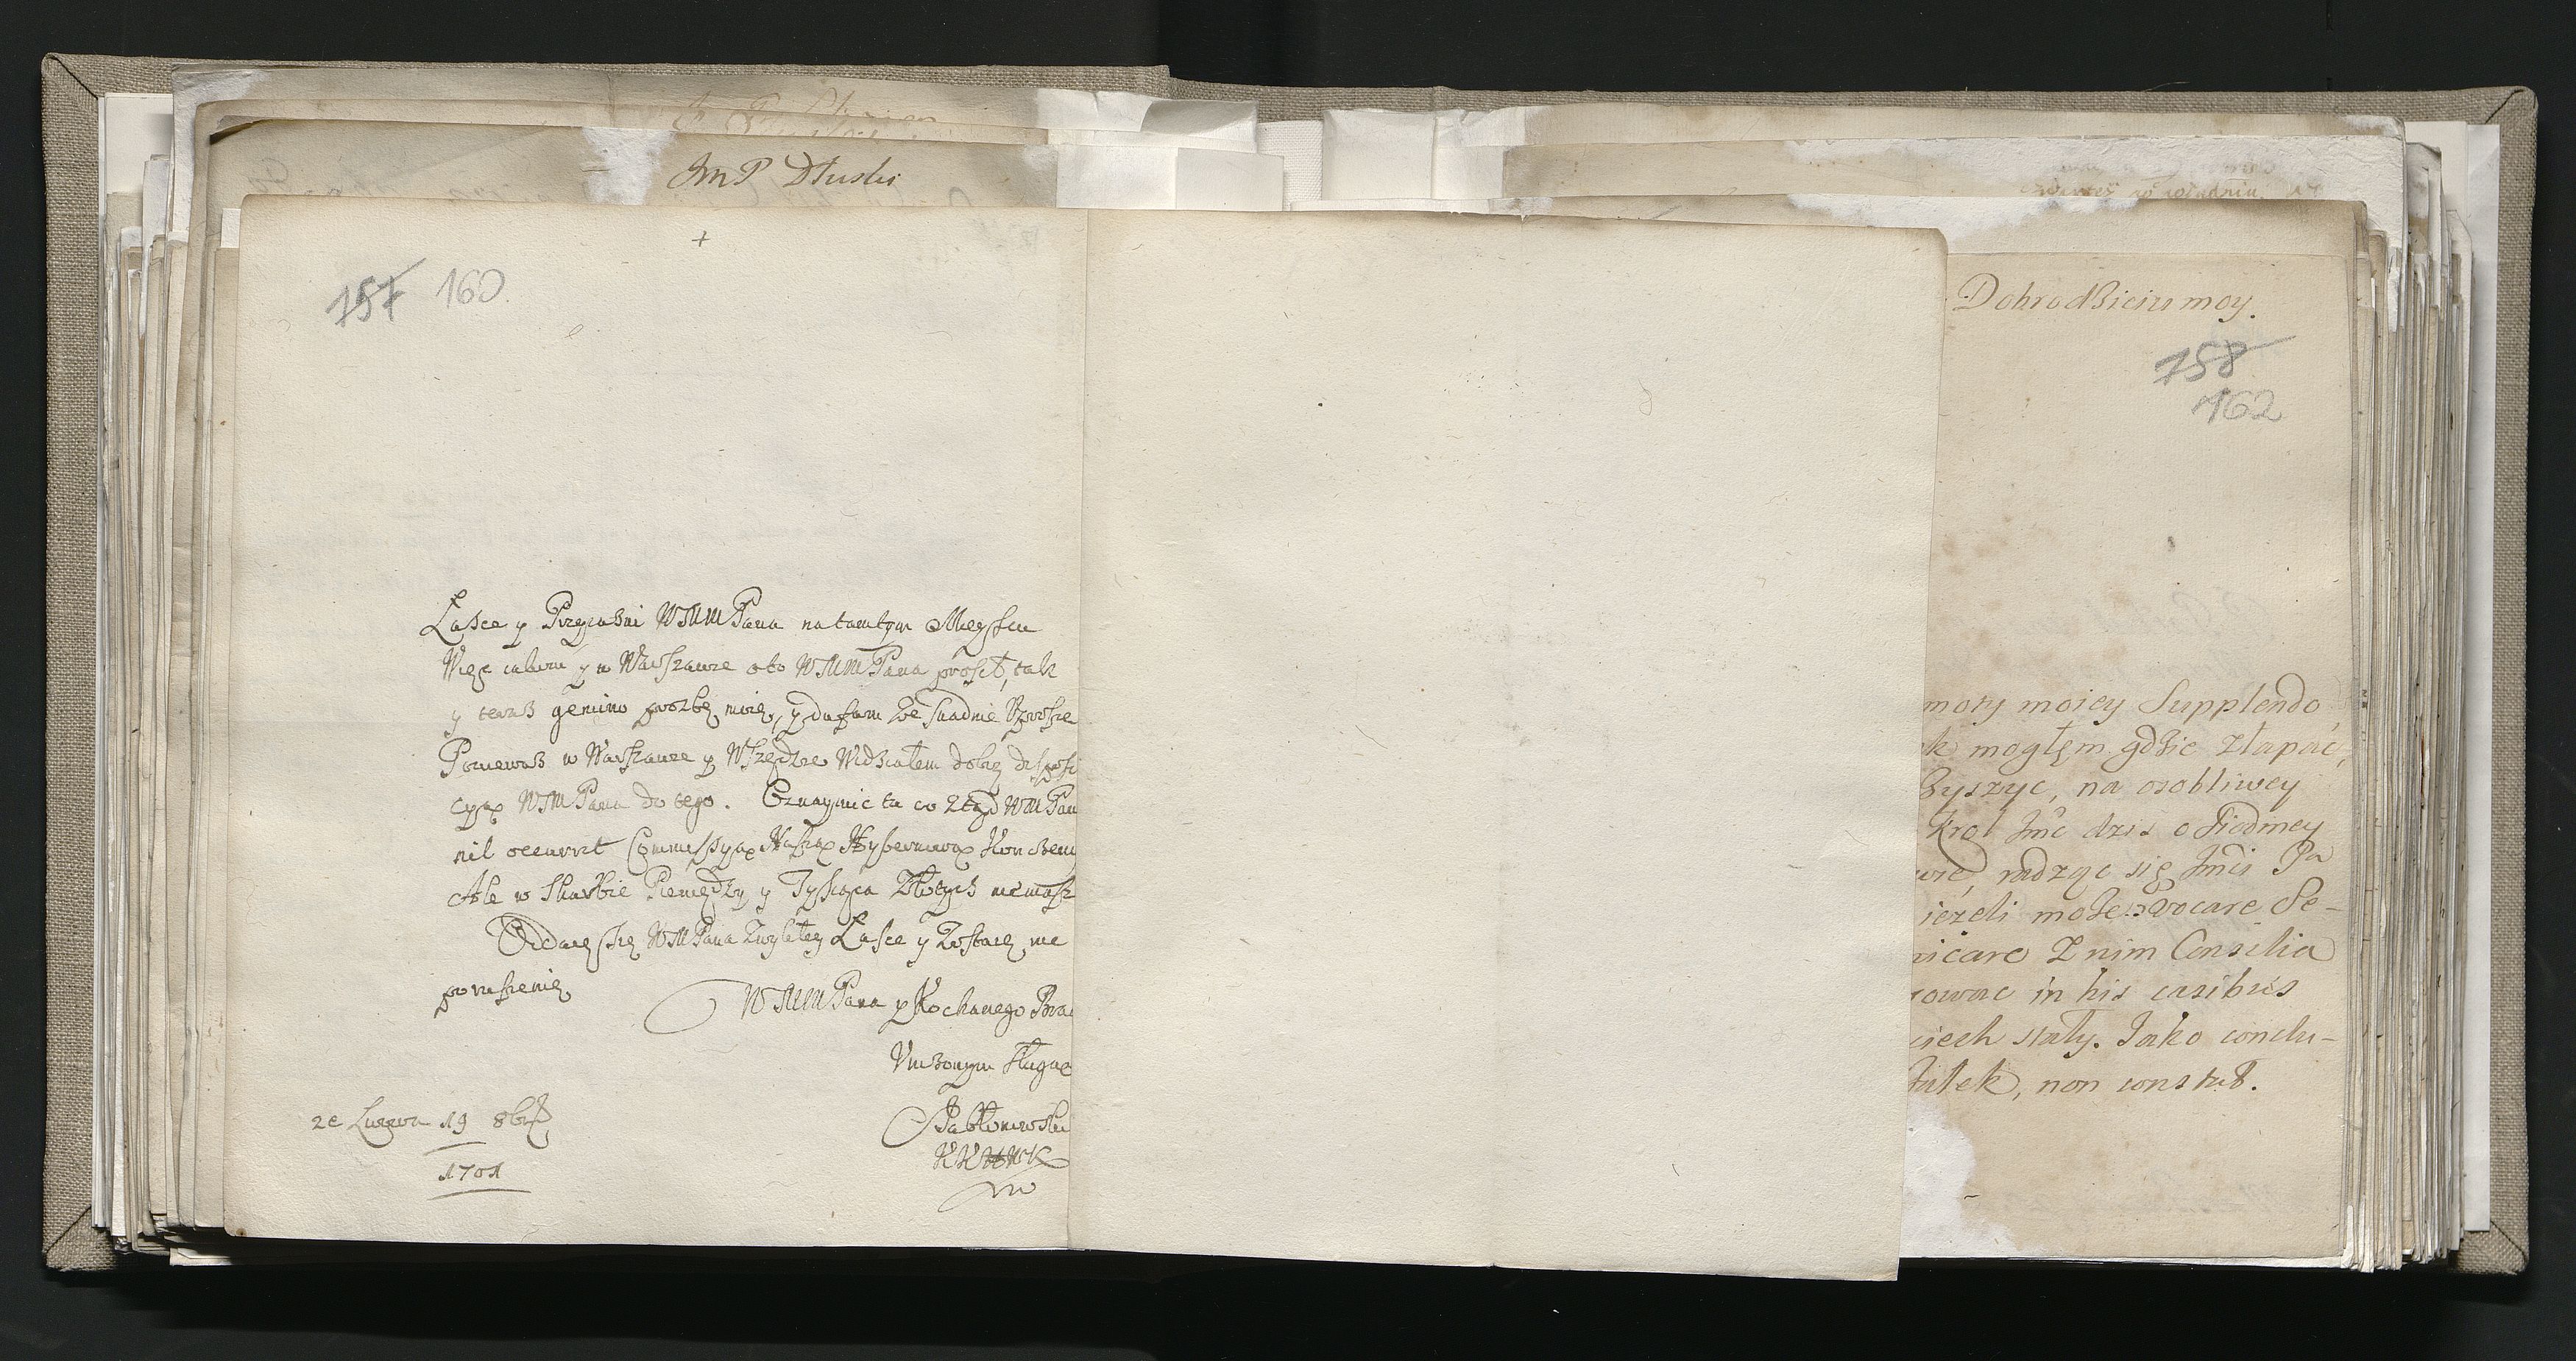 Jm P Dłuski
+
157 160.
Łasce y Przyiaźni WMMPana na tamtym Mieyscu
Więc iakom y w Warszawie o to WMMPana prosił, tak
y teraz gemino proźbę moię, y dufam że snadnie Uproszę
Poniewasz w Warszawie y Wszędzie Widziałem dobrą disposi
cyą WMPana do tego. Oznaymić tu co ztąd WMPan
nil occurrit Commissyą Naszą Hybernową Kończem
Ale w Skarbie Pieniędzy y Tysiąca Złotych niemasz
Oddaię się WMPana Zwykłey Łasce y Zostaię nie
poruszenie
WMMPana y Kochanego Bra
Uniżonym sługą
Jabłonowski
ze Lwowa 19 8br
1701
Dobrodzieiu moy.
158
162
mory moiey Supplendo
k mogłem gdzie złapać,
Byszyc, na osobliwey
Krol Jmć dzis o siodmey
wie, radząc się Jmci Pa
ieżeli może vocare Se-
nicare Z nim Consilia
rowac in his casibus
ciech stały. Jako conclu-
tulek, non constat.